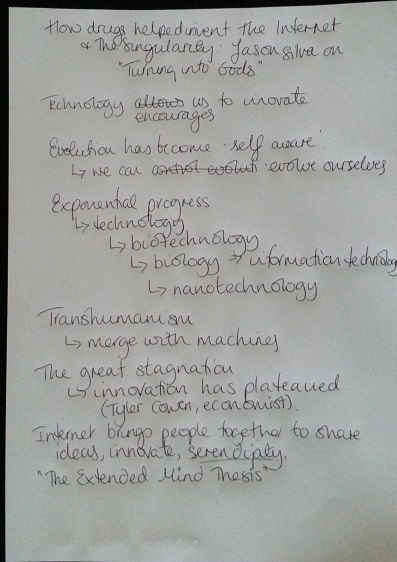 How drugs helped invent The Internet
& The Singularity: Jason Silva on
"Turning into Gods"
Technology allows us to inovate
encourages
Evolution has become 'self aware'.
↳ we can control evoluti evolve ourselves
Exponential progress
↳ technology
↳ biotechnology
↳ biology → information technolog
↳ nanotechnology
Transhumanism
↳ merge with machines
The great stagnation
↳ innovation has plateaued
(Tyler Cowen, economist).
Internet brings people together to share
ideas, innovate, serendipity.
"The Extended Mind Thesis"